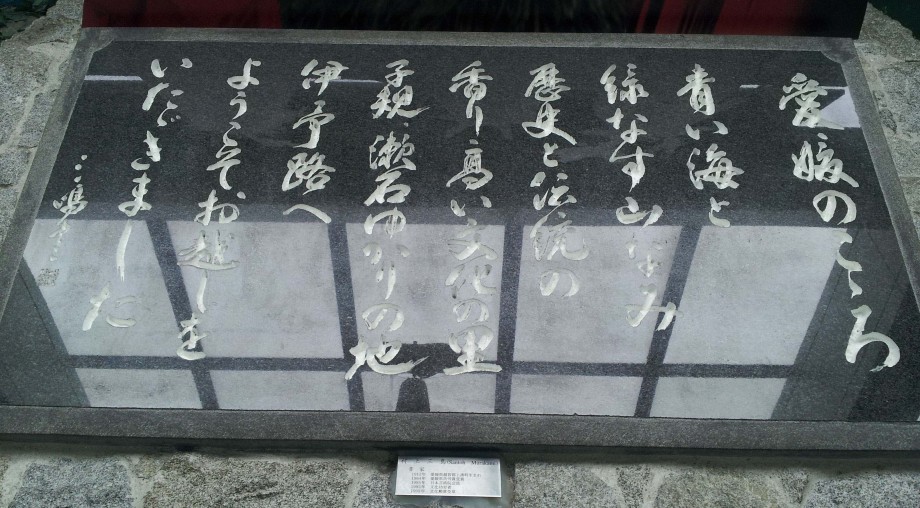 愛媛のこころ
青い海と
緑なす山なみ
歴史と伝統の
香り高い文化の里
子規 漱石ゆかりの地
伊予路へ
ようこそお越しを
いたゞきました
三嶋